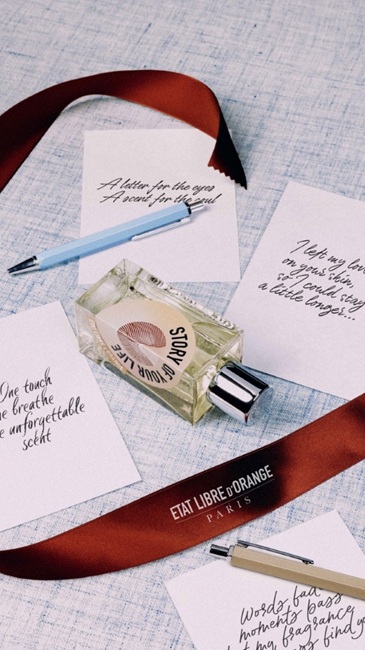 A letter for the eyes
A scent for the soul
I left my love
on your skin,
so I could stay
a little longer...
STORY OF YOUR LIFE
One touch
one breathe
one unforgettable
scent
ETAT LIBRE D'ORANGE
PARIS
Words fad
moments pass
my fragrance
find yo